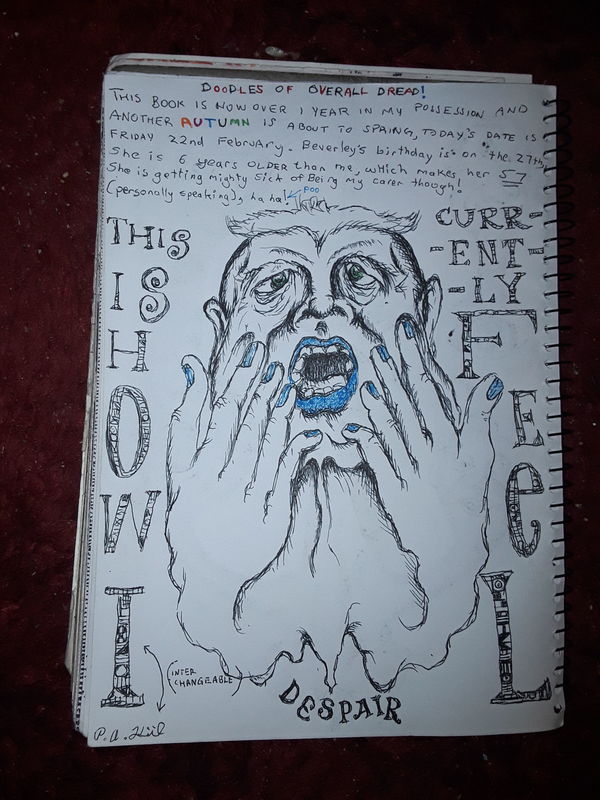 DOODLES OF OVERALL DREAD!
THIS BOOK IS NOW OVER 1 YEAR IN MY POSSESSION AND
ANOTHER AUTUMN IS ABOUT TO SPRING, TODAY'S DATE IS
FRIDAY 22nd FebruAry. Beverley's birthday is on the 27th,
She is 6 years OLDER than me, which makes her 57
She is getting mighty Sick of Being my carer though!
(personally speaking), ha ha!
POO
THIS
IS
H
O
W
I
CURR-
-ENT-
-LY
F
E
e
L
(INTER
CHANGEABLE)
DESPAIR
P. A. Hill